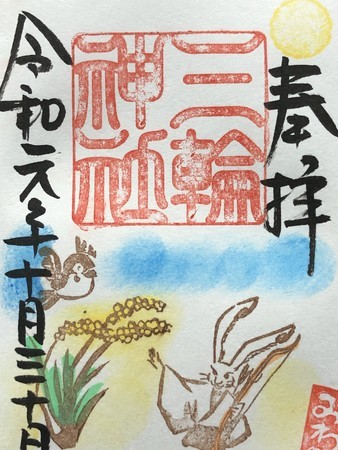 奉拝
三輪
神社
令和元年十月三十日
みわ